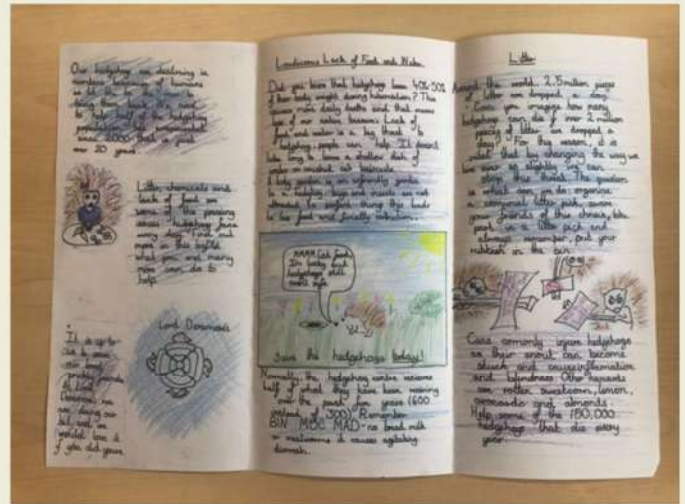 Our hedgehogs are declining in
numbers because of humans
so it the of humans to
bring them back. It's said
to help half of the hedgehog
population has
since 2000 that is just
over 20 years.
Litter, chemicals and
lack of food are
some of the pressing
issues hedgehogs face
every day. Find out
more in this leaflet
what you and many
more can do to
help.
It is up to
us to save
our local
prickly friends
At Lord
Deramores we
are doing our
bit and we
would love it
if you did yours.
Lord Deramores
Loadicious Lack of Food and Water
Did you know that hedgehogs lose 40%-50%
of their body weight during hibernation? This
occurs
use of our nation because Lack of
food and water is a big threat to
hedgehogs, people can help. It doesn't
take long to leave a shallow dish of
water or
A tidy garden is an unfriendly garden
to a hedgehog and insects are not
attracted to perfect things this leads
to no food and finally
MMMM Cat food,
I'm lucky but
hedgehogs still
aren't safe
Save the hedgehogs today!
Normally, the hedgehog centre receives
half of what they have been receiving
over the past few years (600
instead of 300). Remember
BIN MOC MAD - no bread milk
or mealworms it causes agitating
Litter
Around the world 2.5 million pieces
of litter are dropped a day.
Can you imagine how many
hedgehogs can die if over 2 million
pieces of litter are dropped a
day? For this reason, it is
that by changing the way we
live our life we can
stop this threat. The question
is what can we do: organise
a communal litter pick,
your friends of this , take
part in a litter pick and
always remember, put your
rubbish in the bin.
Cans commonly injure hedgehogs
as their snout can become
stuck and cause inflammation
and blindness. Other hazards
are rotten sweetcorn, lemon,
avocado and almonds.
Help some of the 150,000
hedgehogs that die every
year.